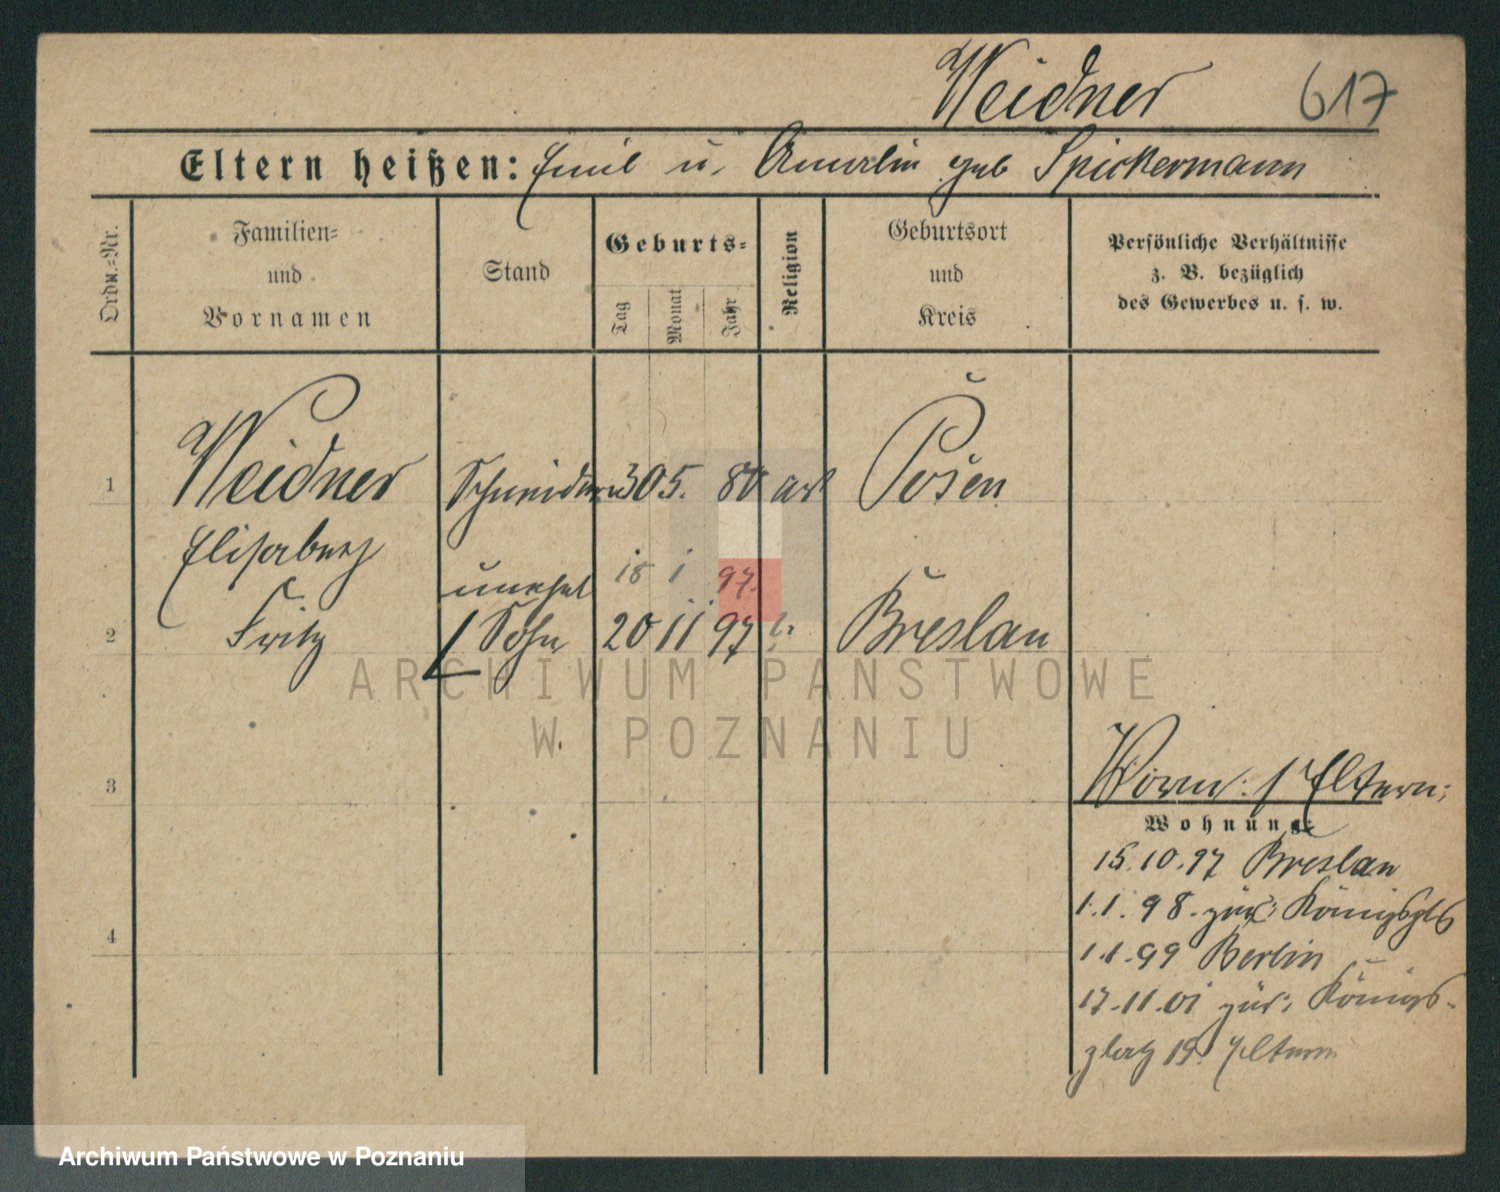 Weidner 617
Eltern heißen: Emil u. Amalie geb Spickermann
Ordn.=Nr.
Familien=
und
Vornamen
Stand
Geburts=
Tag
Monat
Jahr
Religion
Geburtsort
und
Kreis
Persönliche Verhältnisse
z. B. bezüglich
des Gewerbes u. s. w.
1 Weidner Schneiderin 30 5. 80 Posen
Elisabeth
unehel 18 1 97.
2 Fritz Sohn 20 11 97 Breslau
3
4
Eltern:
Wohnung:
15.10.97 Breslau
1.1.98. zur:
1.1.99 Berlin
17.11.01 zur: Königs-
platz 19. Eltern
ARCHIWUM PAŃSTWOWE
W POZNANIU
Archiwum Państwowe w Poznaniu